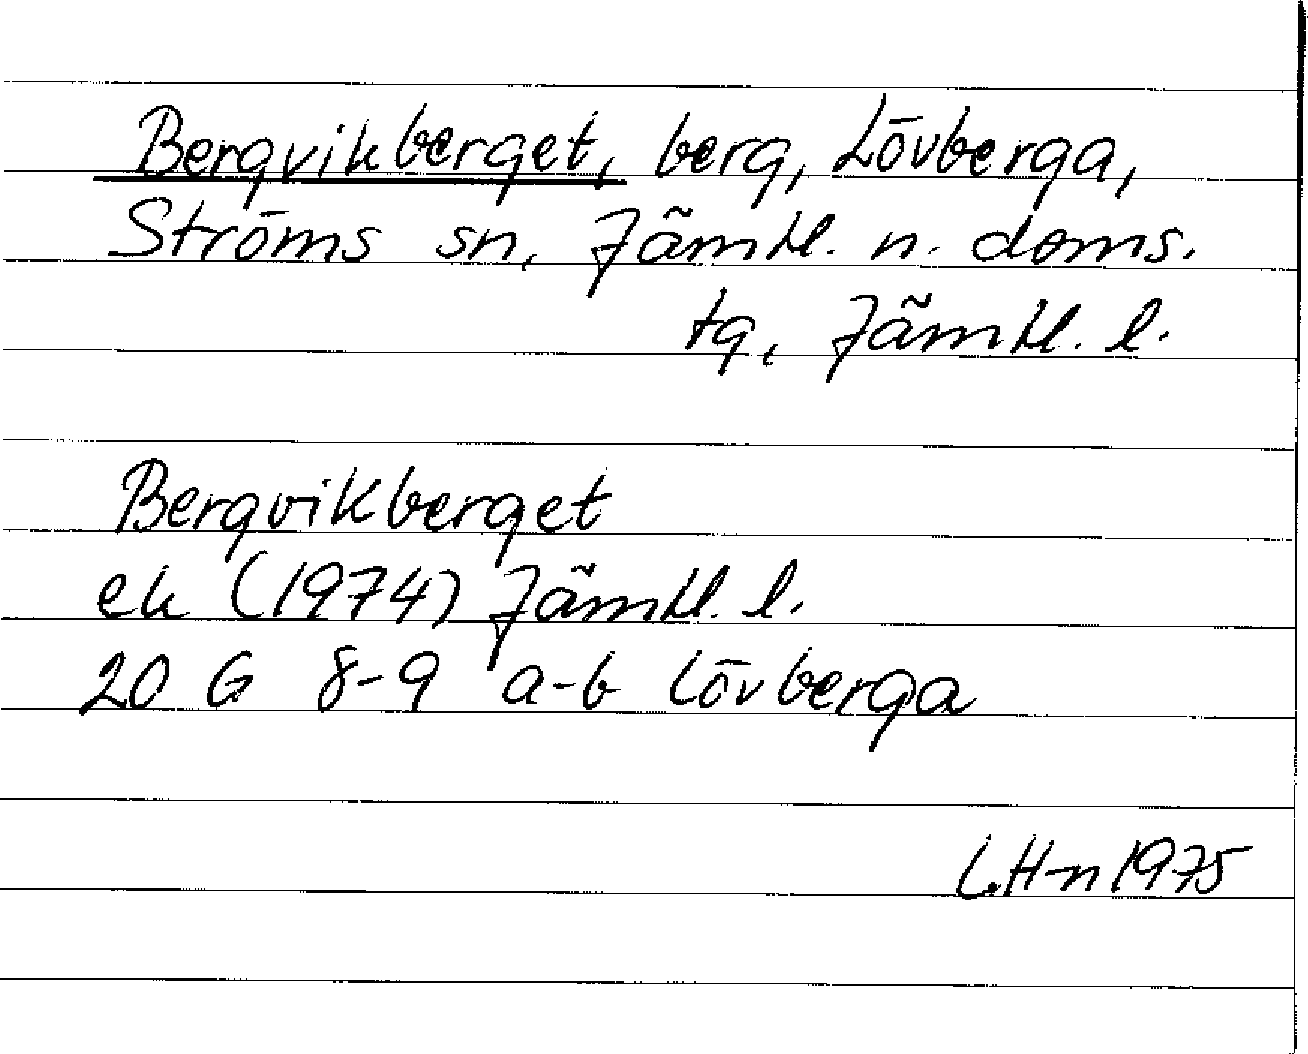 Bergvikberget, berg, Lövberga,
Ströms sn, Jämtl. n. doms.
tg, Jämtl. l.
Bergvikberget
ek (1974) Jämtl. l.
20 G 8-9 a-b Lövberga
L.H-n 1975